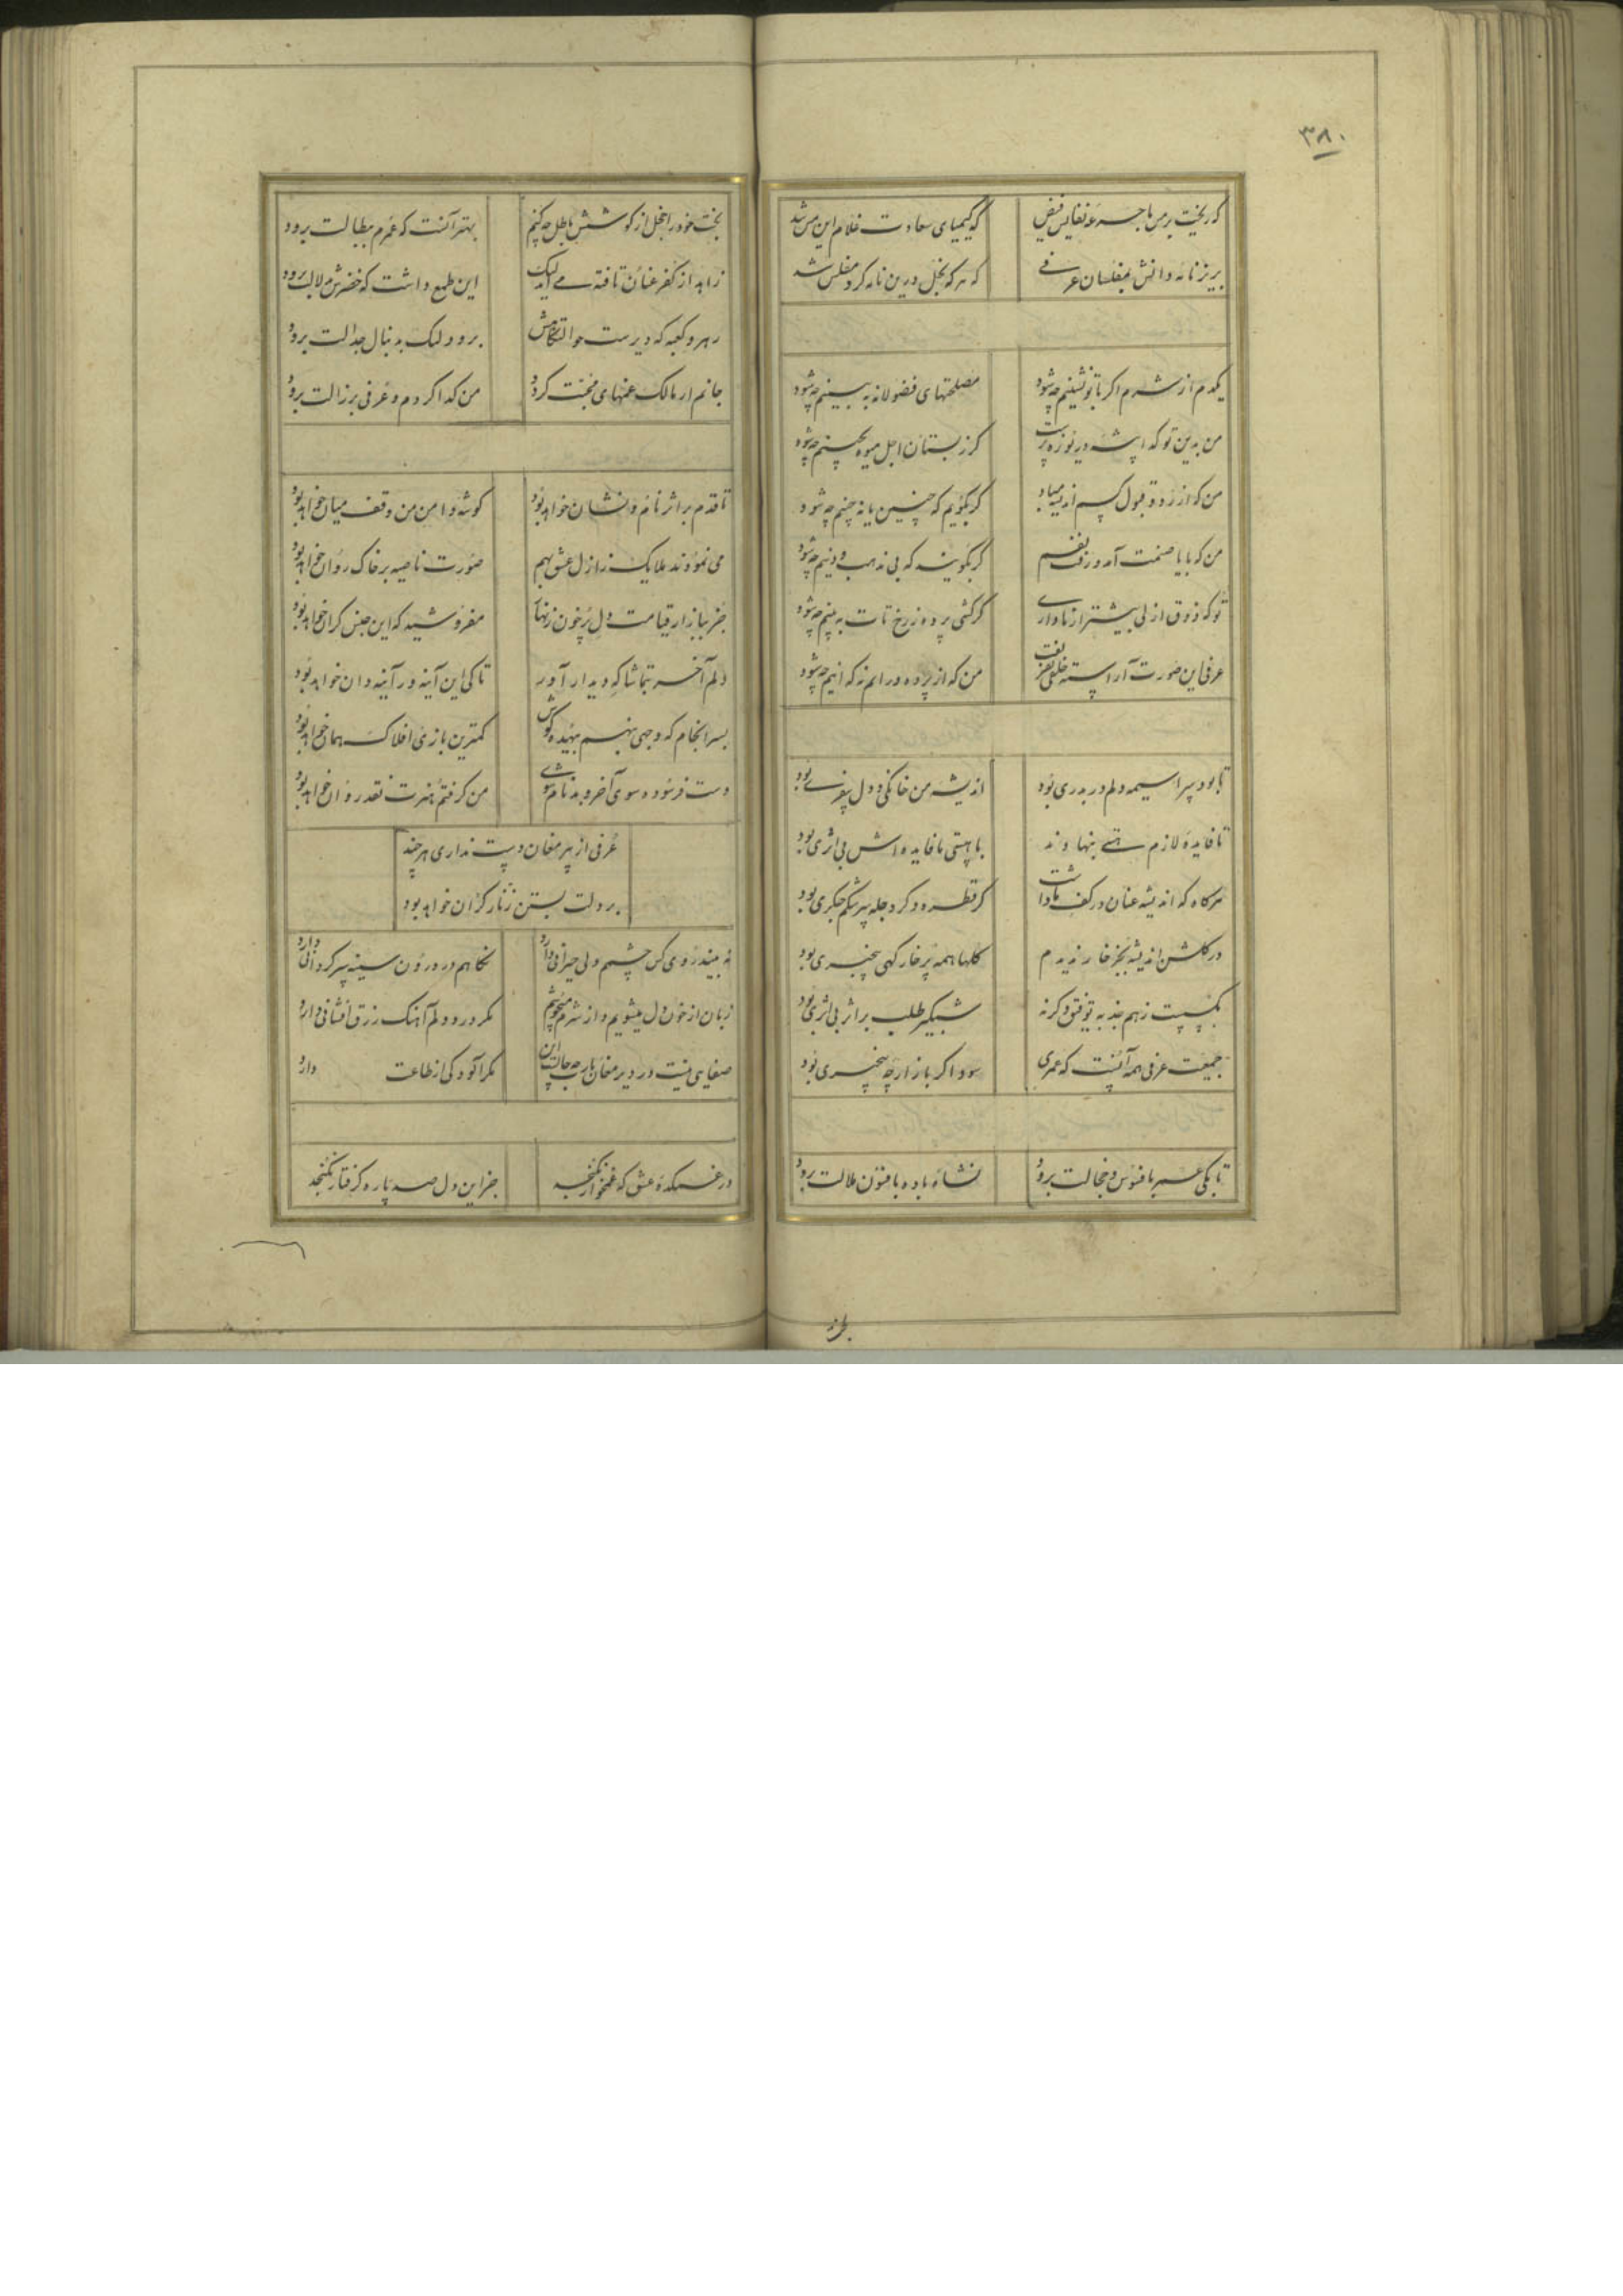 ۳۸۰
که ریخت بر من با جرعه نفایس فیض
که کیمیای سعادت غلام این مس شد
بریز نامه دانش بمفلسان عرفی
که هر که بخل درین نامه کرد مفلس شد
یکدم از شرم اگر با تو نشینم چه شود
مصلحتهای فضولانه به بینم چه شود
من بدین توکه
کز بستان اجل میوه بچینم چه شود
من که از رد و قبول کس
کر بگویم که چنین یا نه چنینم چه شود
من که با یا صنمت آمد و رفت نفسم
کر بگویند که بی مذهب و دینم چه شود
تو که ذوق ازلی بیشتر از ما داری
کر کشی پرده ز رخ تات به بینم چه شود
عرفی این صورت آراسته خلقی بفریفت
من که از پرده در ایم نه که اینم چه شود
تا بود سراسیمه دلم در بدری بود
اندیشه من خانگی و دل سفری بود
تا فایده لازم هستی بنهادند
با هستی ما فایده اش بی اثری بود
هرکاه که اندیشه عنان در کف ما داشت
کر قطره و کر دجله
در کلشن اندیشه بجز خار ندیدم
کلها همه پر خار کهی بیخبری بود
زهم بند به توفیق وکرنه
شبکیر طلب بر اثر بی اثری بود
جمعیت عرفی همه آنست که عمری
سوداکر بازارچه بیخبری بود
تا بکی عمر بافسوس و خجالت برود
نشاء باده بافسون ملالت برود
بخت خود را خجل از کوشش باطل چه کنم
بهتر آنست که عمرم ببطالت برود
زاهد از کفر عنان تافته می آید لیک
این طمع داشت که خضرش بدلالت برود
رهرو کعبه که دیرست حوالتکاهش
برود لیک به دنبال جدالت برود
جانم ار مالک غمهای محبت کردد
من کدا کردم و عرفی برزالت برود
تا قدم بر اثر نام و نشان خواهد بود
کوشه دامن من وقف میان خواهد بود
می نمودند ملایک ز ازل عشق بهم
صورت ناصیه بر خاک روان خواهد بود
جز ببازار قیامت دل پر خون زنهار
مفروشید که این جنس کران خواهد بود
دلم آخر بتماشاکه دیدار آور
تا کی این آینه در آینه دان خواهد بود
بسر انجام که وجهی بنهم بیهده کوش
کمترین بازی افلاک همان خواهد بود
دست فرسوده سوی آخر و بدنام شوی
من کرفتم هنرت نقد روان خواهد بود
عرفی از پیر مغان دست نداری هر چند
بر دلت بستن زنار کران خواهد بود
نه بیند روی کس چشم ولی حیرانی دارد
نکاهم در درون سینه سرکردانی دارد
زبان از خون دل میشویم و از شرم میجوشم
مکر درد دلم آهنک رزق افشانی دارد
صفای نیت در دیر مغان یارب چه حالست این
مکر آلودکی از طاعت دارد
در غمکده عشق که غمخوار نکنجد
جز این دل صد پاره کرفتار نکنجد